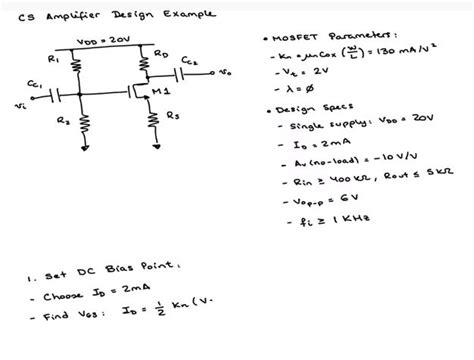 CS Amplifier Design Example
VDD = 20V
R1
RD
CC2
Vo
CC1
Vi
M1
R2
RS
• MOSFET Parameters:
- Kn = μnCox (W/L) = 130 mA/V²
- Vt = 2V
- λ = ∅
• Design Specs
- Single supply: VDD = 20V
- ID = 2mA
- Av (no-load) = -10 V/V
- Rin ≥ 400 KΩ, Rout ≤ 5KΩ
- Vop-p = 6V
- fi ≥ 1 KHz
1. Set DC Bias Point:
- Choose ID = 2mA
- Find VGS: ID = 1/2 Kn (V-